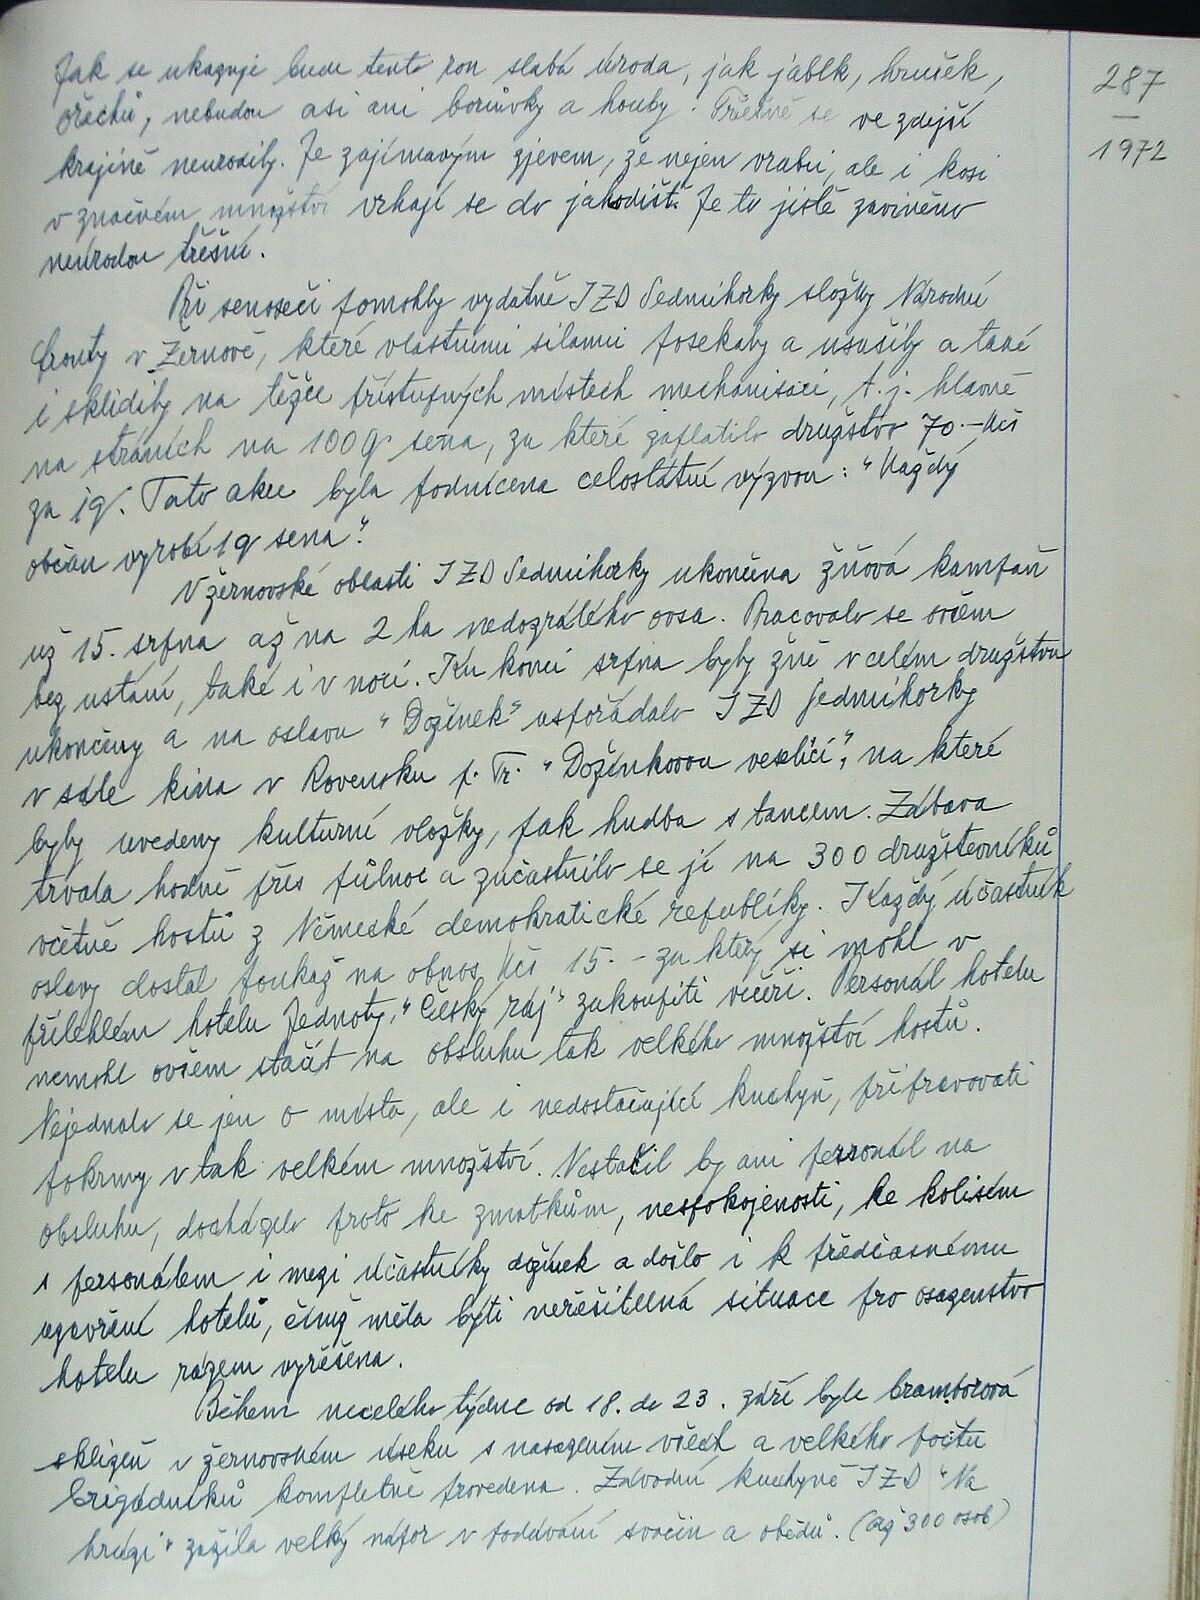 Jak se ukazuje bude tento rok slabá úroda, jak jablk, hrušek,
287
ořechů, nebudou asi ani borůvky a houby. Třešně se ve zdejší
1972
krajině neurodily. Je zajímavým zjevem, že nejen vrabci, ale i kosi
v značném množství vrhají se do jahodišť. Je to jistě zaviněno
neúrodou třešní.
Při senoseči pomohly vydatně JZD Sedmihorky složky Národní
fronty v Žernově, které vlastními silami posekaly a usušily a také
i sklidily na těžce přístupných místech mechanisaci, t.j. hlavně
na stráních na 100 q sena, za které zaplatilo družstvo 70.- Kčs
za 1q. Tato akce byla podnícena celostátní výzvou: "Každý
občan vyrobí 1q sena".
V žernovské oblasti JZD Sedmihorky ukončena žňová kampaň
už 15. srpna až na 2 ha nedozrálého ovsa. Pracovalo se ovšem
bez ustání, také i v noci. Ku konci srpna byly žně v celém družstvu
ukončeny a na oslavu "Dožínek" uspořádalo JZD Sedmihorky
v sále kina v Rovensku p. Tr. "Dožínkovou veselici", na které
byly uvedeny kulturní vložky, pak hudba s tancem. Zábava
trvala hodně přes půlnoc a zúčastnilo se jí na 300 družstevníků
včetně hostů z Německé demokratické republiky. Každý účastník
oslavy dostal poukaz na obnos Kčs 15.- za který si mohl v
přilehlém hotelu Jednoty, "Český ráj" zakoupiti večeři. Personál hotelu
nemohl ovšem stačit na obsluhu tak velkého množství hostů.
Nejednalo se jen o místa, ale i nedostačující kuchyň, připravovati
pokrmy v tak velkém množství. Nestačil by ani personál na
obsluhu, docházelo proto ke zmatkům, nespokojenosti, ke kolisím
s personálem i mezi účastníky dožínek a došlo i k předčasnému
uzavření hotelů, čímž měla býti neřešitelná situace pro osazenstvo
hotelu rázem vyřešena.
Během necelého týdne od 18. do 23. září byla bramborová
sklizeň v žernovském úseku s nasazením všech a velkého počtu
brigádníků kompletně provedena. Závodní kuchyně JZD "Na
hrázi" zažila velký nápor v podávání svačin a obědů. (až 300 osob)